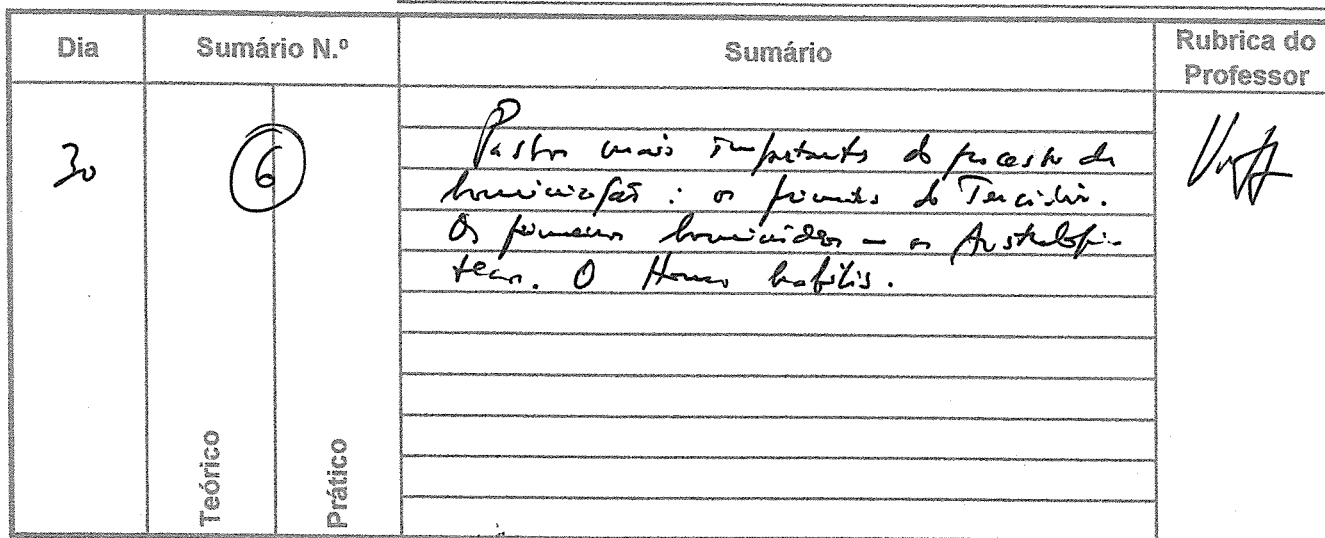 Dia
Sumário N.º
Sumário
Rubrica do
Professor
30
6
mais importantes do processo de
hominização : os primatas do Terciário.
Os primeiros hominídeos - os Australopi-
tecos. O Homo habilis.
Teórico
Prático